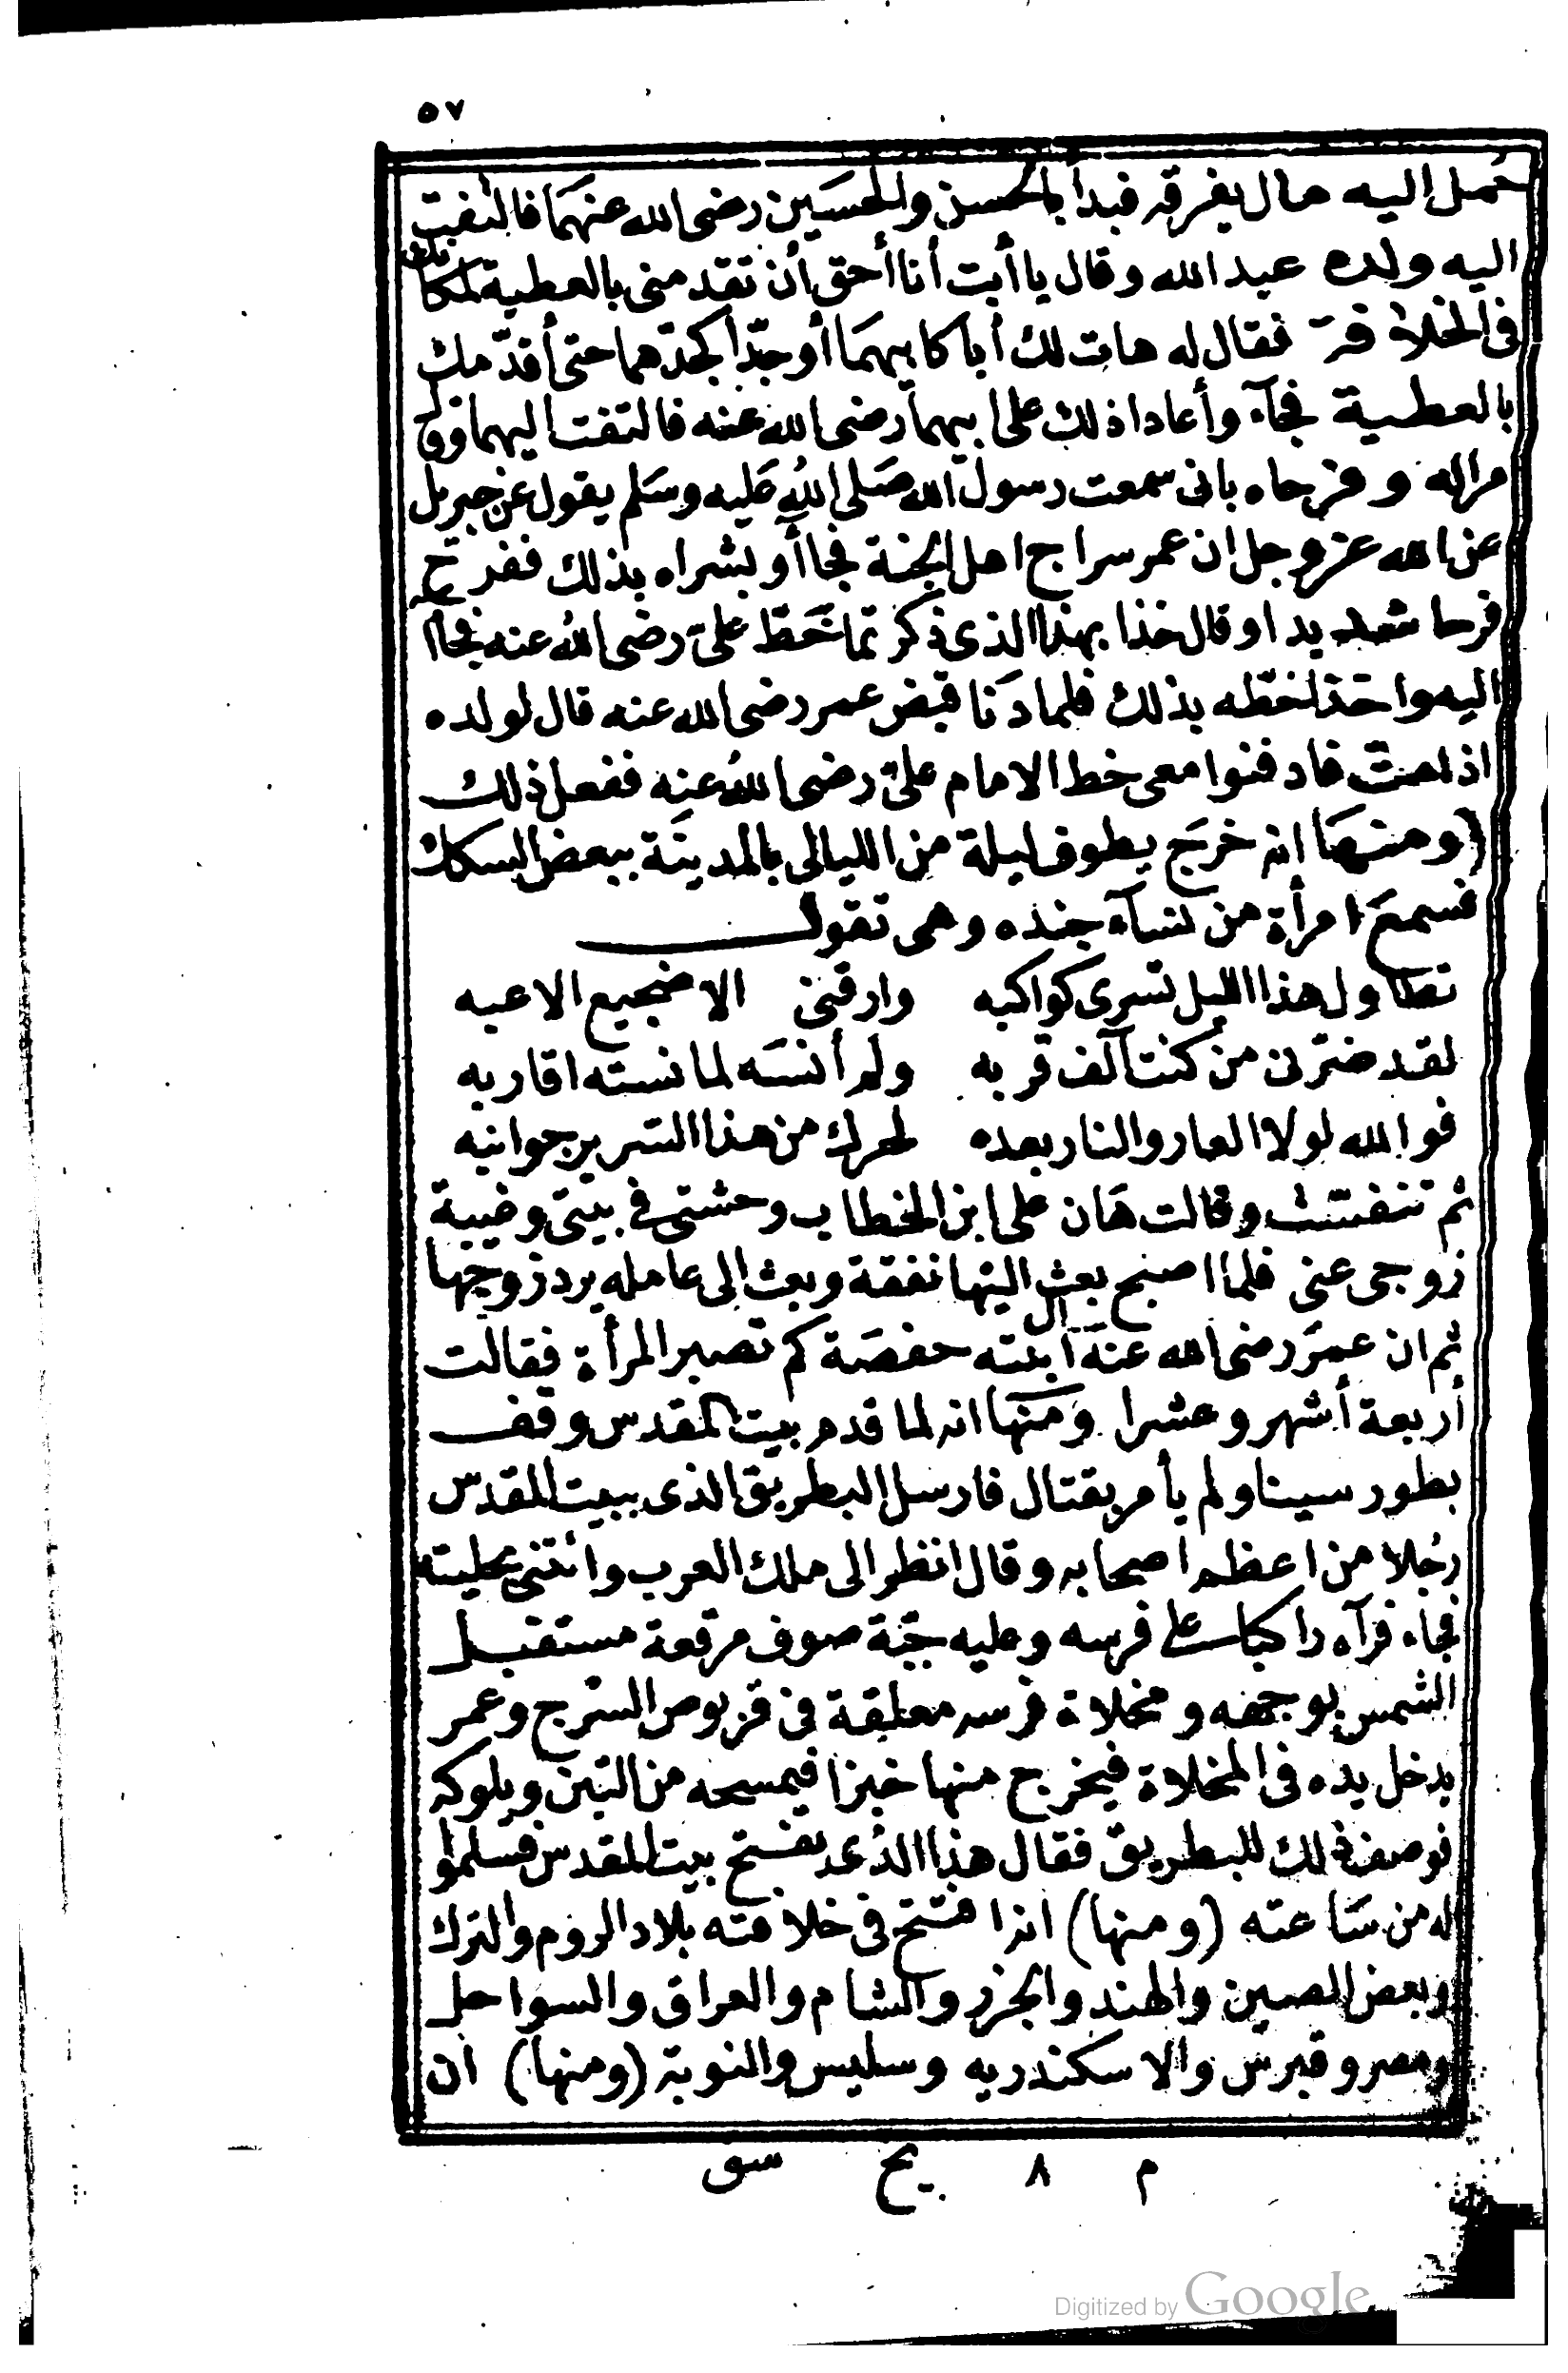 ٥٧
حمل اليه مال يفرقه فبدأ بالحسن والحسين رضى الله عنهما فالتفت
اليه ولده عبد الله وقال يا أبت أنا أحق أن تقدمنى بالعطية لمكانك
فى الخلافة فقال له هات لك أبا كابيهما أو جدّا كجدّهما حتى أقدّمك
بالعطية فجآء وأعادا ذلك على ابيهما رضى الله عنه فالتفت اليهما وقال
مرا له وفرحاه بانى سمعت رسول الله صلى الله عليه وسلم يقول عن جبريل
عن الله عز وجل ان عمر سراج اهل الجنة فجاأو بشراه بذلك ففرح
فرحا شديدا وقال خذا بهذا الذى ذكرتما خَطّ علىّ رضى الله عنه فجاآ
اليه واخذا خطّه بذلك فلما دَنا قبض عمر رضى الله عنه قال لولده
اذا مت فادفنوا معى خط الامام علىّ رضى الله عنه ففعل ذلك
(ومنها انه خرج يطوف ليلة من الليالى بالمدينة ببعض السكك
فسمع امرأة من نسآء جنده وهى تقول
تطاول هذا الليل تسرى كواكبه وارقنى الا ضجيع الاعبه
لقد ضرّنى من كنت آلف قربه ولم أنسه لما نسته اقاربه
فوالله لولا العار والنار بعده لحرك من هذا السرير جوانبه
ثم تنفست وقالت هَان على ابن الخطاب وحشتى فى بيتى وغيبة
زوجى عنى فلما اصبح بعث اليها نفقة وبعث الى عامله يرد زوجها
ثم ان عمر رضى الله عنه سأل ابنته حفصة كم تصبر المرأة فقالت
أربعة أشهر وعشرا ومنها انه لما قدم بيت المقدس وقف
بطور سينا ولم يأمر بقتال فارسل البطريق الذى ببيت المقدس
رجُلا من اعظم اصحابه وقال انظر الى ملك العرب وائتنى بحليته
فجاء فرآه راكبا على فرسه وعليه جبّة صوف مرقعة مستقبل
الشمس بوجهه ومخلاة فرسه معلقة فى قربوص السرج وعمر
يدخل يده فى المخلاة فيخرج منها خبزا فيمسحه من التبن ويلوكه
فوصف ذلك للبطريق فقال هذا الذى يفتح بيت المقدس فسلموا
له من ساعته (ومنها) انه افتتح فى خلافته بلاد الروم والترك
وبعض الصين والهند والجزر والشام والعراق والسواحل
ومصر وقبرس والاسكندريه وسليس والنوبة (ومنها) ان
م ٨ يح سق
Digitized by Google